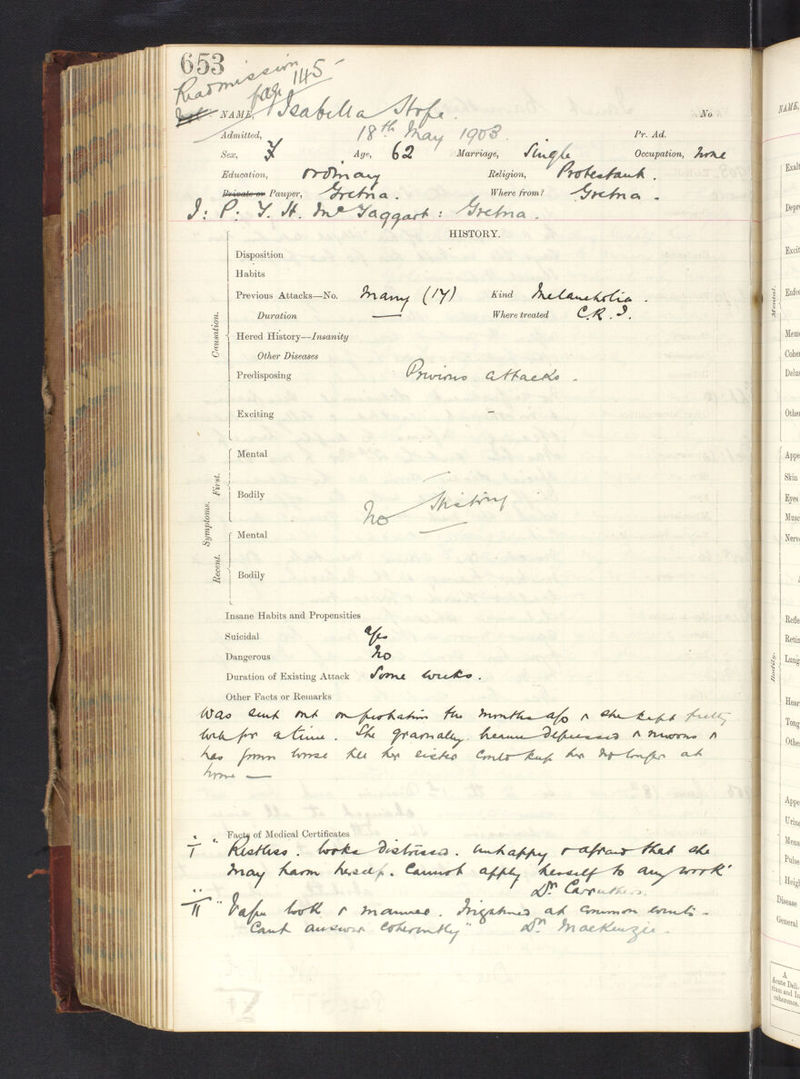 653
Readmission
page 145
NAME, Isabella Hope. No
Admitted, 18th May 1903. Pr. Ad.
Sex, F Age, 62 Marriage, Single Occupation, None
Education, Ordinary Religion, Protestant.
Private or Pauper, Gretna. Where from? Gretna.
I: P: J. H. McTaggart: Gretna.
HISTORY.
Disposition
Habits
Previous Attacks—No. Many (17) Kind Melancholia.
Duration — Where treated C.R.I.
Hered History—Insanity
Other Diseases
Predisposing Previous attacks.
Exciting –
Causation.
Mental
Bodily
First.
No History
Symptoms.
Mental
Bodily
Recent.
Insane Habits and Propensities
Suicidal Yes
Dangerous No
Duration of Existing Attack Some weeks.
Other Facts or Remarks
Was sent out on probation months ago & she kept pretty
well for a time. She gradually became depressed & &
has grown worse till her sister could keep her no longer at
home —
Facts of Medical Certificates
I " Restless. looks distressed. unhappy & afraid that she
may harm herself. Cannot apply herself to any work"
Dr. Carruthers.
II " Vague look & manner. Frightened at common events.
Cant answer coherently" Dr. MacKenzie.
NAME,
Mental.
Bodily.
Skin
Eyes
Disease
General